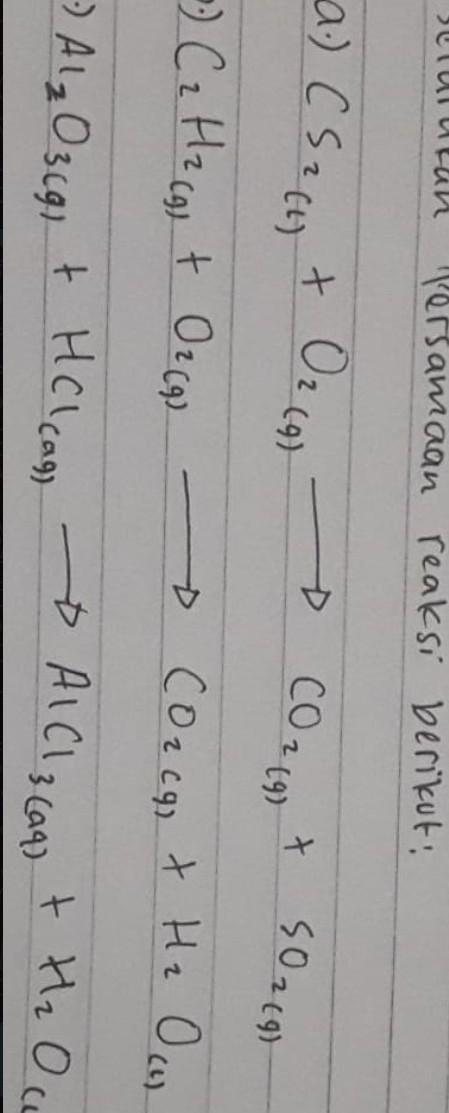 Setarakan persamaan reaksi berikut:
a.) CS₂(l) + O₂(g) → CO₂(g) + SO₂(g)
.) C₂H₂(g) + O₂(g) → CO₂(g) + H₂O(l)
.) Al₂O₃(g) + HCl(aq) → AlCl₃(aq) + H₂O(l